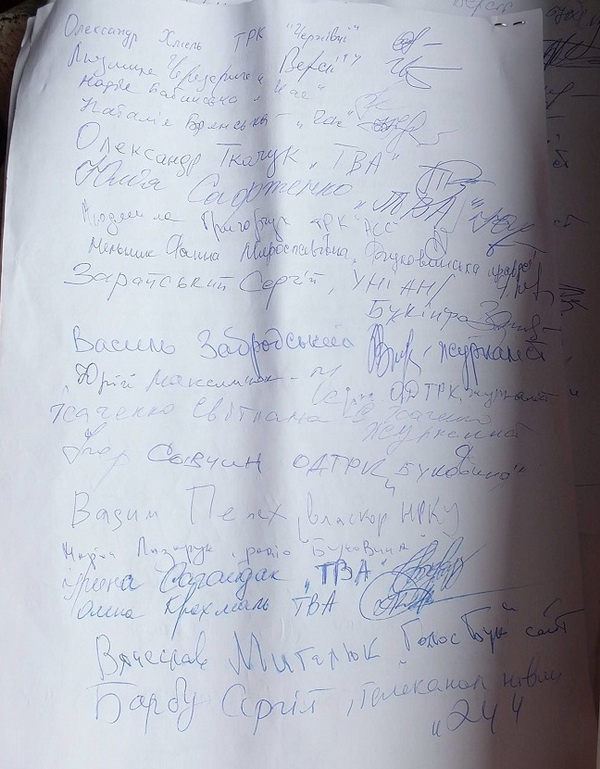 Олександр Хміль ТРК "Чернівці"
Людмила Чередарик "Версії"
Надія Бабинська "Час"
Наталія Брянська "Час"
Олександр Ткачук "ТВА"
Юлія Садженко "ТВА"
Людмила Григорчук ТРК
Меньшик Фаїна Мирославівна,
Зарайський Сергій, УНІАН/
Букінфо
Василь Забродський журналіст
Юрій Максимюк ОДТРК, журналіст
Ткаченко Світлана
Журналіст
Ігор Савчин ОДТРК "Буковина"
Вадим Пелех, власкор НРКУ
Марія Лазарук, радіо "Буковина"
Ірина "ТВА"
Аліна Крохмаль ТВА
Вячеслав Мителюк Голос Бук сайт
Барбу Сергій, телеканал новин
"24"